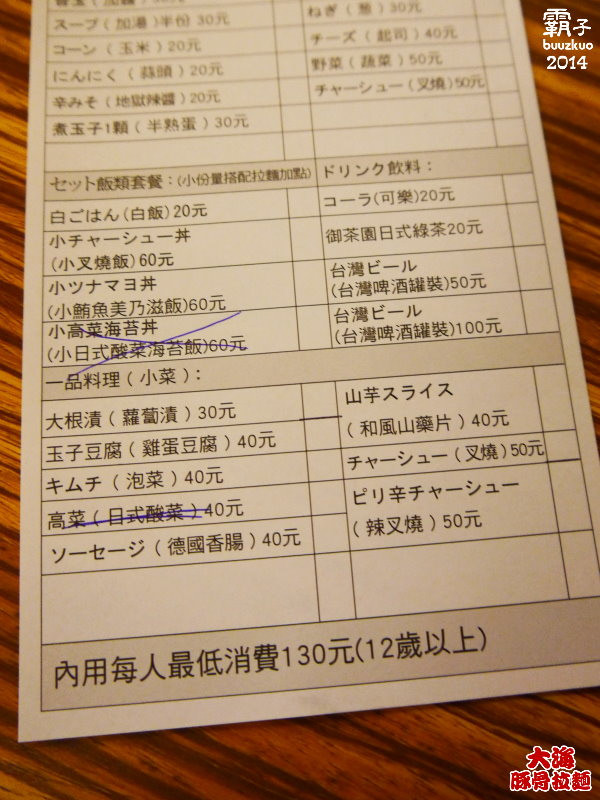 霸子
buuzkuo
2014
スープ(加湯)半份 30元
コーン(玉米)20元
にんにく(蒜頭)20元
辛みそ(地獄辣醬)20元
煮玉子1顆(半熟蛋)30元
ねぎ(蔥)30元
チーズ(起司)40元
野菜(蔬菜)50元
チャーシュー(叉燒)50元
セット飯類套餐:(小份量搭配拉麵加點)
白ごはん(白飯)20元
小チャーシュー丼
(小叉燒飯)60元
小ツナマヨ丼
(小鮪魚美乃滋飯)60元
小高菜海苔丼
(小日式酸菜海苔飯)60元
ドリンク飲料:
コーラ(可樂)20元
御茶園日式綠茶20元
台灣ビール
(台灣啤酒罐裝)50元
台灣ビール
(台灣啤酒罐裝)100元
一品料理(小菜):
大根漬(蘿蔔漬)30元
玉子豆腐(雞蛋豆腐)40元
キムチ(泡菜)40元
高菜(日式酸菜)40元
ソーセージ(德國香腸)40元
山芋スライス
(和風山藥片)40元
チャーシュー(叉燒)50元
ピリ辛チャーシュー
(辣叉燒)50元
內用每人最低消費130元(12歲以上)
大海
豚骨拉麵